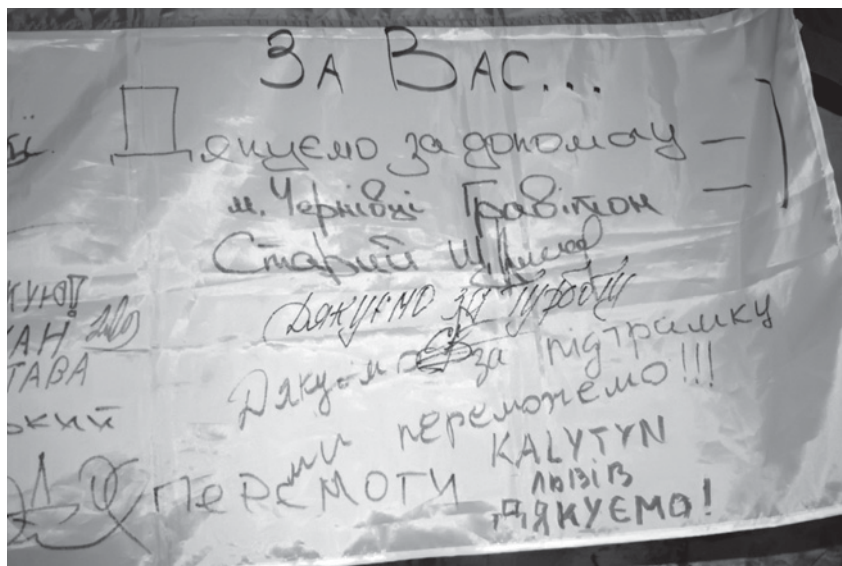 За Вас...
Дякуємо за допомогу =)
м. Чернівці Гравітон
Старий
Дякуємо за турботу
Дякуємо за підтримку
ми переможемо!!!
ПЕРЕМОГИ
KALYTYN
ЛЬВІВ
ДЯКУЄМО!